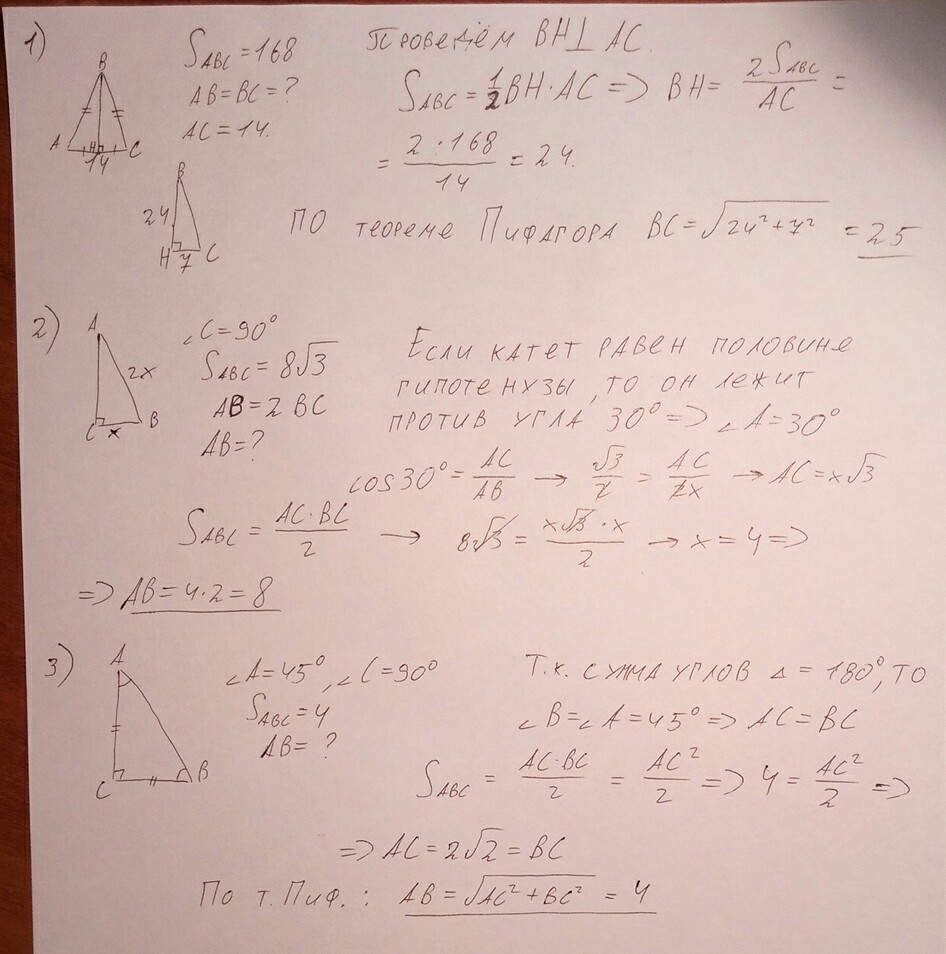 1)
B
A H C
14
S_ABC = 168
AB = BC = ?
AC = 14.
Проведём BH ⊥ AC.
S_ABC = 1/2 BH · AC => BH = 2S_ABC / AC =
= 2 · 168 / 14 = 24.
B
24
H 7 C
По теореме Пифагора BC = √(24² + 7²) = 25
2)
A
2x
C x B
∠C = 90°
S_ABC = 8√3
AB = 2 BC
AB = ?
Если катет равен половине
гипотенузы, то он лежит
против угла 30° => ∠A = 30°
cos30° = AC/AB → √3/2 = AC/2x → AC = x√3
S_ABC = AC·BC / 2 → 8√3 = x√3 · x / 2 → x = 4 =>
=> AB = 4·2 = 8
3)
A
C B
∠A = 45°, ∠C = 90°
S_ABC = 4
AB = ?
Т.к. сумма углов Δ = 180°, то
∠B = ∠A = 45° => AC = BC
S_ABC = AC·BC / 2 = AC² / 2 => 4 = AC² / 2 =>
=> AC = 2√2 = BC
По т. Пиф.: AB = √(AC² + BC²) = 4